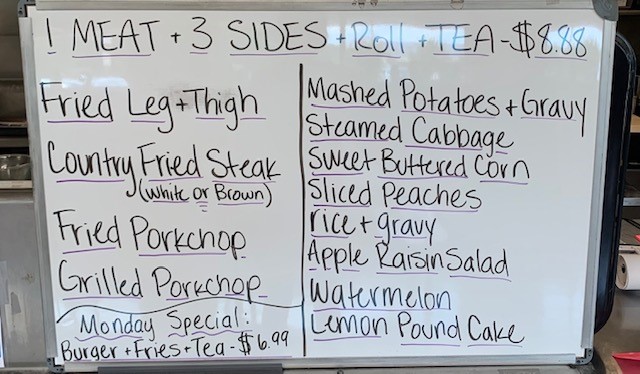 1 MEAT + 3 SIDES + Roll + TEA - $8.88
Fried Leg + Thigh
Country Fried Steak
(white or Brown)
Fried Porkchop
Grilled Porkchop
Monday Special:
Burger + Fries + Tea - $6.99
Mashed Potatoes + Gravy
Steamed Cabbage
Sweet Buttered Corn
Sliced Peaches
rice + gravy
Apple Raisin Salad
Watermelon
Lemon Pound Cake